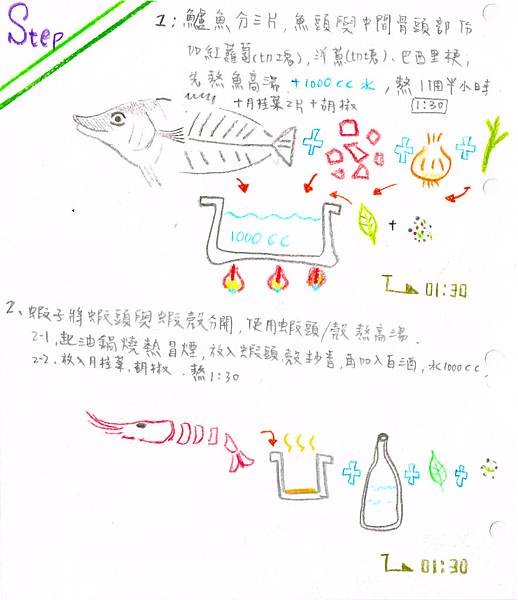 Step
1: 鱸魚分三片,魚頭與中間骨頭部份
加紅蘿蔔(切塊),洋蔥(切塊),巴西里梗,
先熬魚高湯 +1000cc 水,熬1個半小時
+月桂葉2片+胡椒 1:30
1000 CC
01:30
2、蝦子將蝦頭與蝦殼分開,使用蝦頭/殼熬高湯.
2-1,起油鍋燒熱冒煙,放入蝦頭殼炒香,再加入白酒,水1000cc,
2-2.放入月桂葉,胡椒.熬1:30
01:30